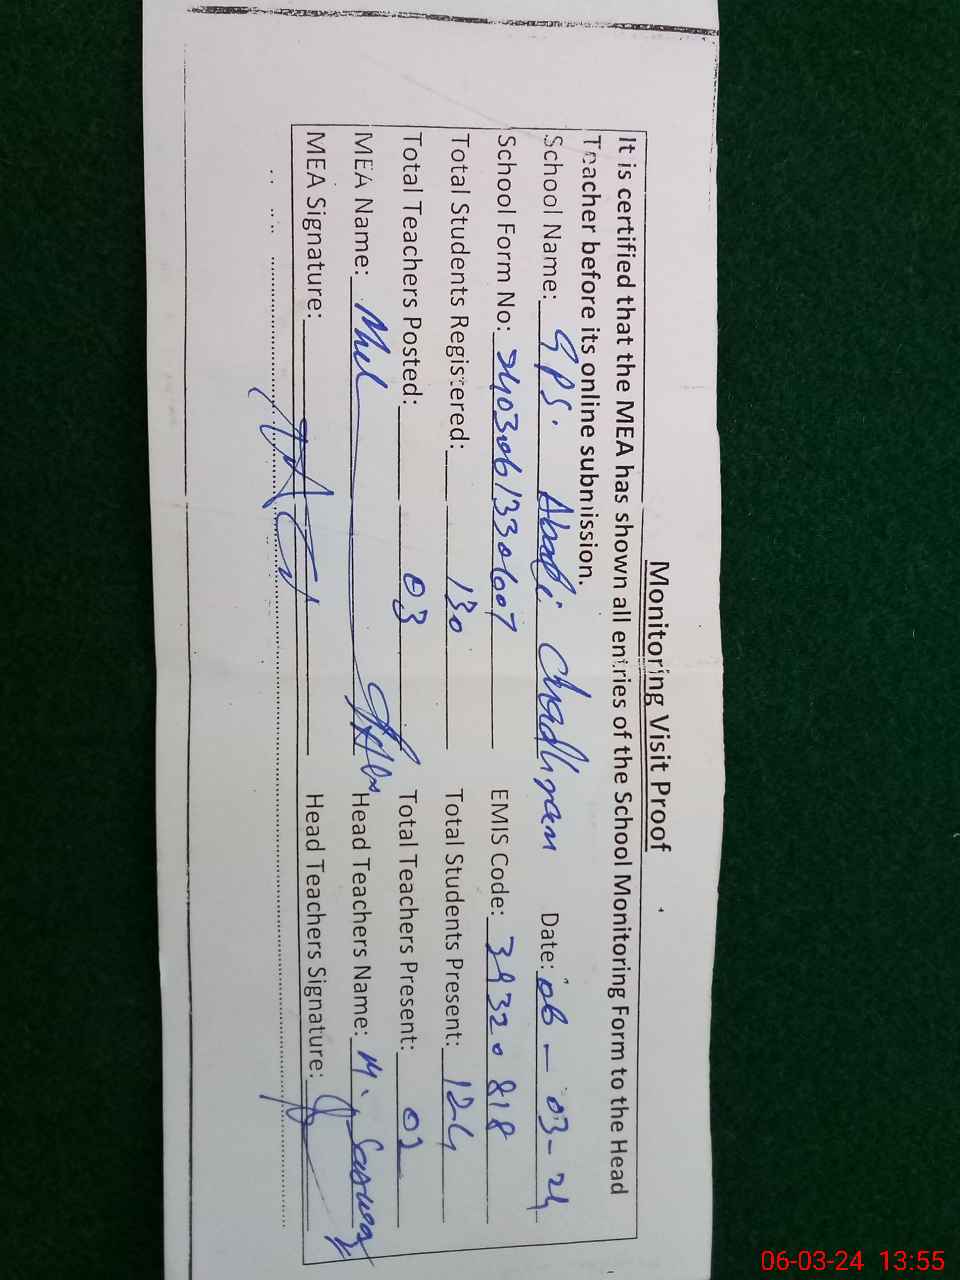 Monitoring Visit Proof
It is certified that the MEA has shown all entries of the School Monitoring Form to the Head
Teacher before its online submission.
School Name: GPS. Abadi Date: 06-03-24
School Form No: 240306133060 EMIS Code: 39320818
Total Students Registered: 130 Total Students Present: 124
Total Teachers Posted: 03 Total Teachers Present: 02
MEA Name: Head Teachers Name: M.
MEA Signature: Head Teachers Signature:
06-03-24 13:55